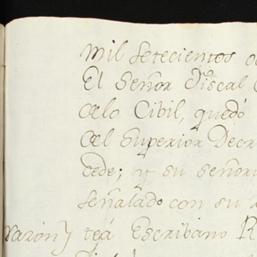 mil setecientos
El Señor Fiscal
de lo Cibil, quedó
del Superior Decr
cede; y su señori
señalado con su
varon) tea Escribano R